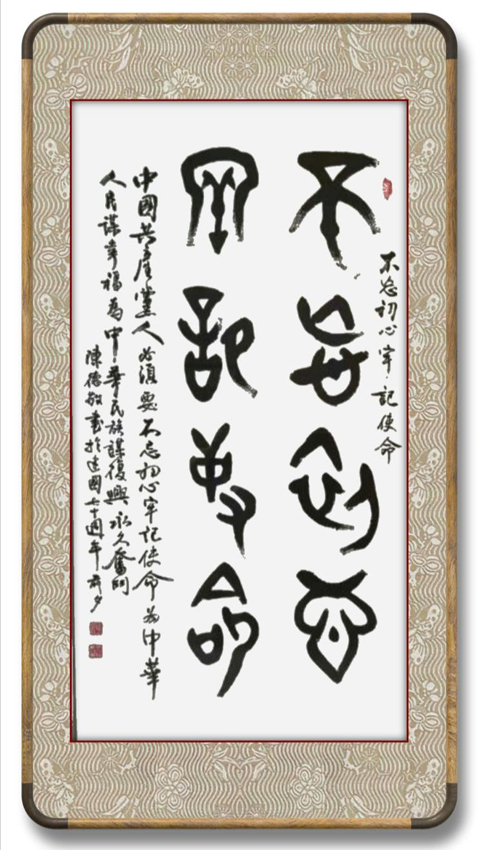 不忘初心牢記使命
不忘初心
牢記使命
中國共産黨人必須要不忘初心牢記使命為中華
人民謀幸福為中華民族謀復興永久奮鬥
陳德 書於建國七十週年前夕